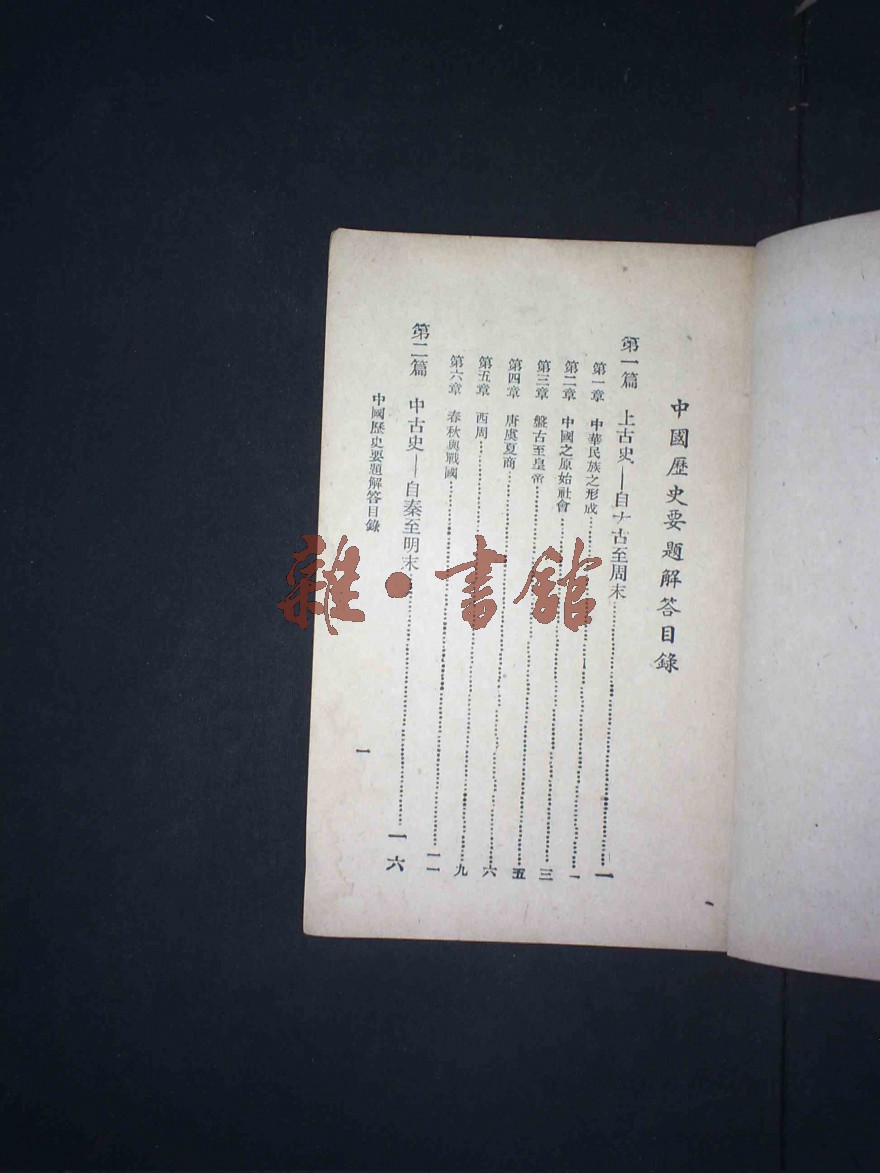 中國歷史要題解答目錄
第一篇 上古史—自太古至周末……一
第一章 中華民族之形成……一
第二章 中國之原始社會……三
第三章 盤古至皇帝……五
第四章 唐虞夏商……六
第五章 西周……九
第六章 春秋與戰國……一一
第二篇 中古史—自秦至明末……一六
中國歷史要題解答目錄
一
雜·書館